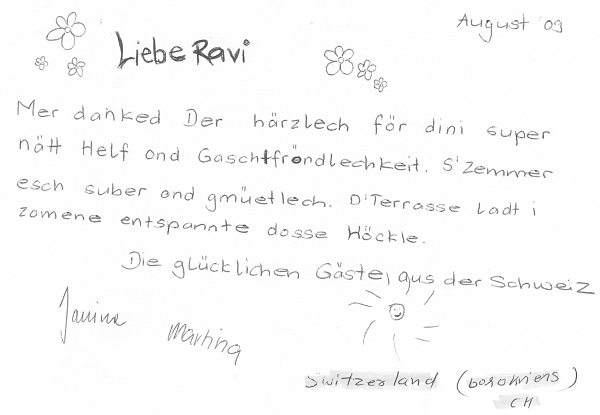 August 09
Liebe Ravi
Mer danked Der härzlech för dini super
nätt Helf ond Gaschtfröndlechkeit. S'Zemmer
esch suber ond gmüetlech. D'Terrasse ladt i
zomene entspannte dosse Höckle.
Die glücklichen Gäste, aus der Schweiz
Janine Martina
Switzerland
CH